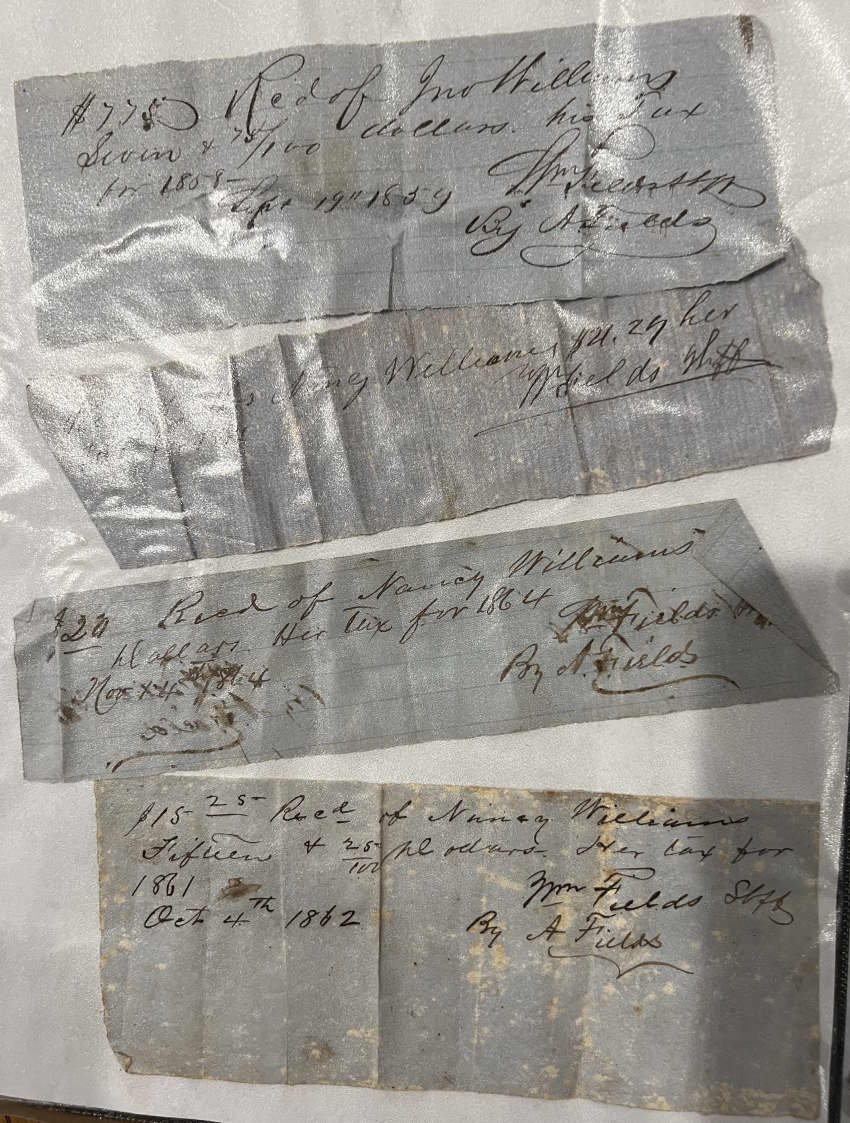 $7.75 Recd of Jno Williams
Seven & 75/100 dollars his Tax
for 1858
Sept 19th 1859 Wm Fields Shff
By A Fields
Nancy Williams $21.29 her
Wm Fields Shff
$20 Recd of Nancy Williams
Dollars Her tax for 1864
Nov 1864 Wm Fields
By A. Fields
$15 25 Recd of Nancy Williams
Fifteen & 25/100 Dollars Her tax for
1861 Wm Fields Shff
Oct 4th 1862 By A Fields